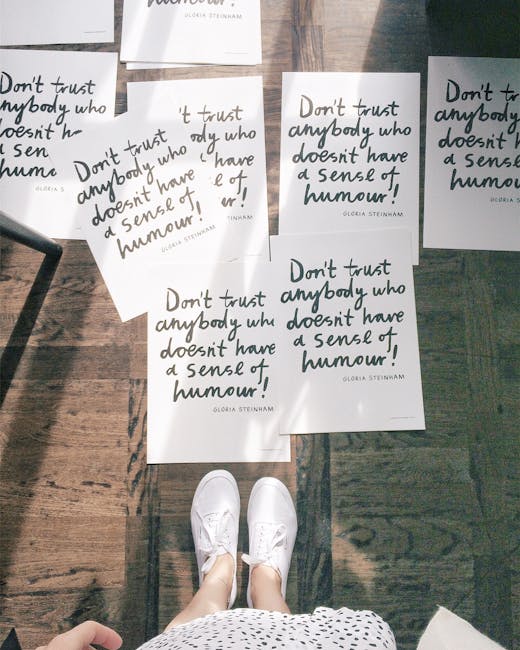 humour!
GLORIA STEINHAM
Don't trust
anybody who
doesn't
a sen
humo
GLORIA S
Don't trust
anybody who
doesn't have
a sense of
humour!
GLORIA STEINHAM
't trust
ody who
have
of
ur!
Don't trust
anybody who
doesn't have
a sense of
humour!
GLORIA STEINHAM
Don't
anybody
doesn't
a sense
humou
Don't trust
anybody who
doesn't have
a sense of
humour!
GLORIA STEINHAM
Don't trust
anybody who
doesn't have
a sense of
humour!
GLORIA STEINHAM